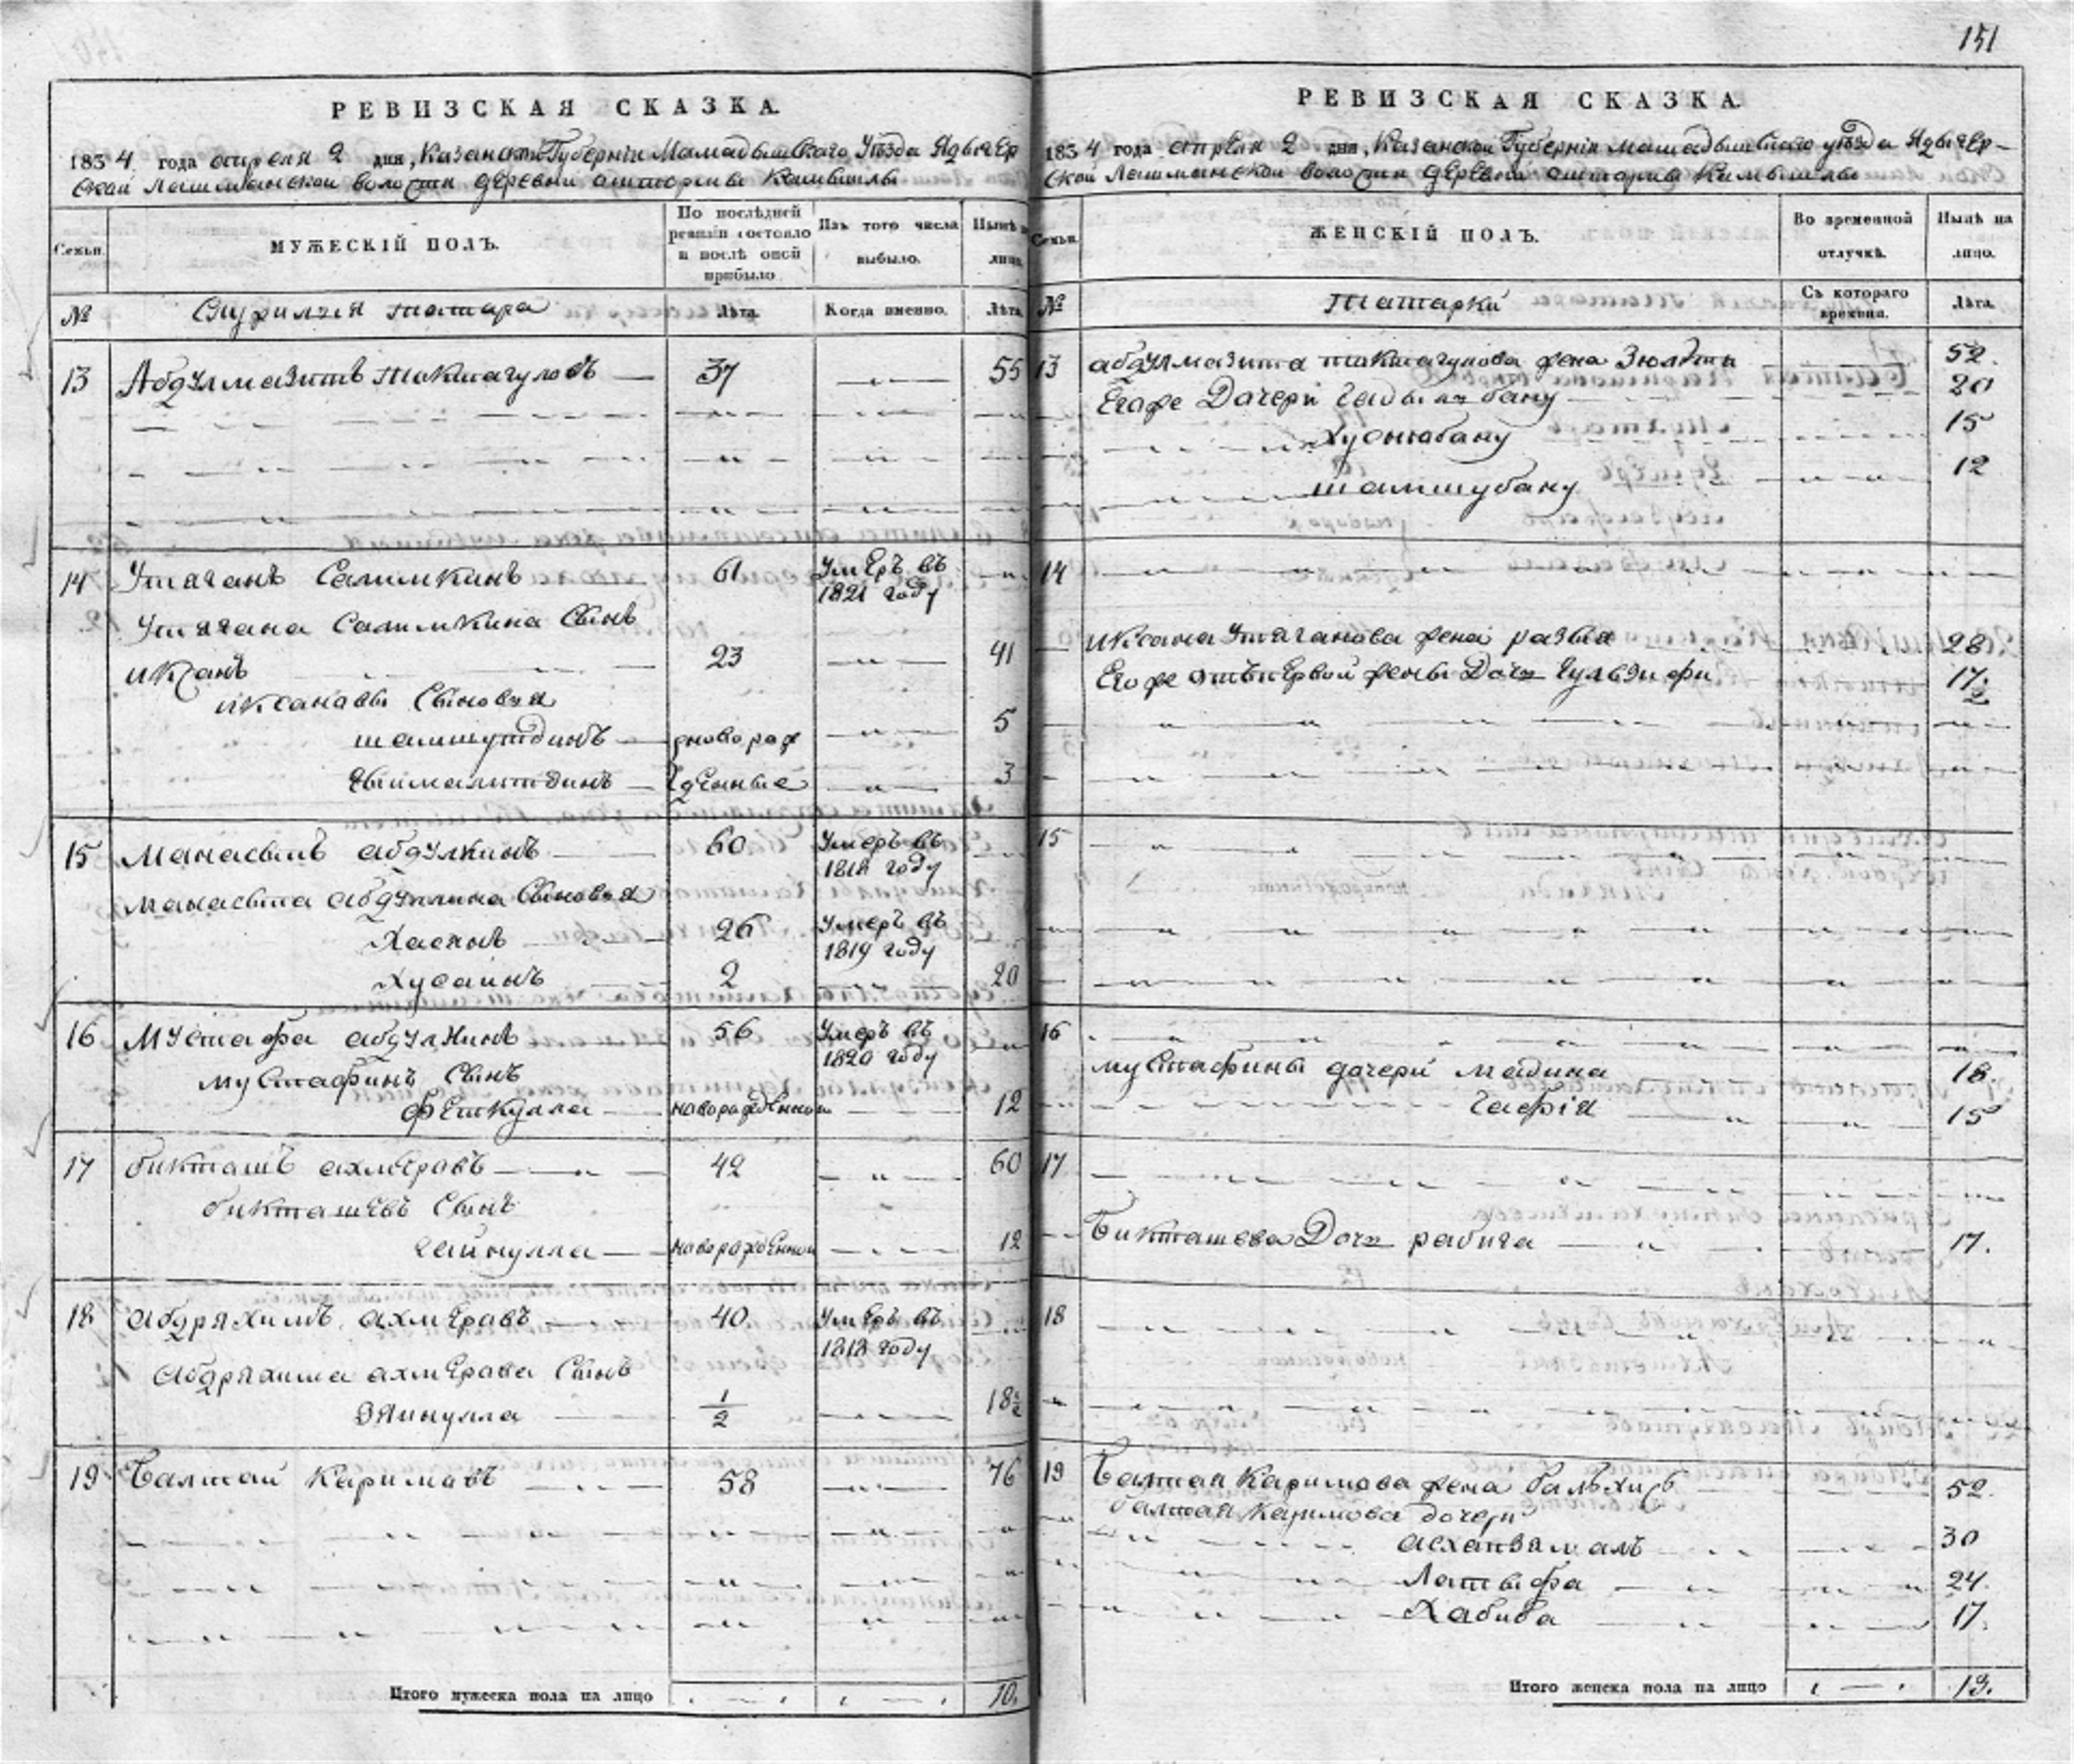 151
РЕВИЗСКАЯ СКАЗКА.
1834 года апреля 2 дня, Казанской Губернiи Мамадышского Уѣзда Ядыгер
ской Лашманской волости деревни
Семьи.
МУЖЕСКIЙ ПОЛЪ.
По послѣдней ревизiи состояло и послѣ оной прибыло
Изъ того числа выбыло.
Нынѣ на лицо.
№
татара
Лѣта.
Когда именно.
Лѣта.
13 Абдулмазитъ Токтагуловъ 37 55
14 Утяганъ Салимкинъ 61 Умеръ въ 1821 году
Утягана Салимкина Сынъ
Иксанъ 23 41
Иксановы Сыновья
шамшутдинъ новорож 5
денные 3
15 Манасыпъ абдулкинъ 60 Умеръ въ 1818 году
Манасыпа Сыновья
26 Умеръ въ 1819 году
Хусаинъ 2 20
16 Мустафа 56 Умеръ въ 1820 году
мустафинъ Сынъ
феткулла новорожденной 12
17 бикташъ ахмеровъ 42 60
бикташевъ Сынъ
гайнулла новорожденной 12
18 абдряхимъ ахмеровъ 40 Умеръ въ 1818 году
Абдряхима ахмерова Сынъ
Зяинулла 1/2 18 1/2
19 Балтай Каримовъ 58 76
Итого мужеска пола на лицо 10.
РЕВИЗСКАЯ СКАЗКА.
1834 года апреля 2 дня, Казанской Губернiи мамадышского уѣзда Ядыгер-
ской Лашманской волости деревни
Семьи.
ЖЕНСКIЙ ПОЛЪ.
Во временной отлучкѣ.
Нынѣ на лицо.
№
татарки
Съ котораго времени.
Лѣта.
13 абдулмазита токтагулова жена 52.
Егоже Дочери бану 20
Хуснюбану 15
шамшубану 12
14
Иксана Утяганова жена разыя 28
Егоже отъ первой жены Дочь 17 1/2
15
16
мустафины дочери мадина 18.
гафiя 15
17
Бикташева Дочь рабига 17.
18
19 Балтая Каримова жена 52.
балтая Каримова дочери
30
Латыфа 24.
Хабиба 17.
Итого женска пола на лицо 13.